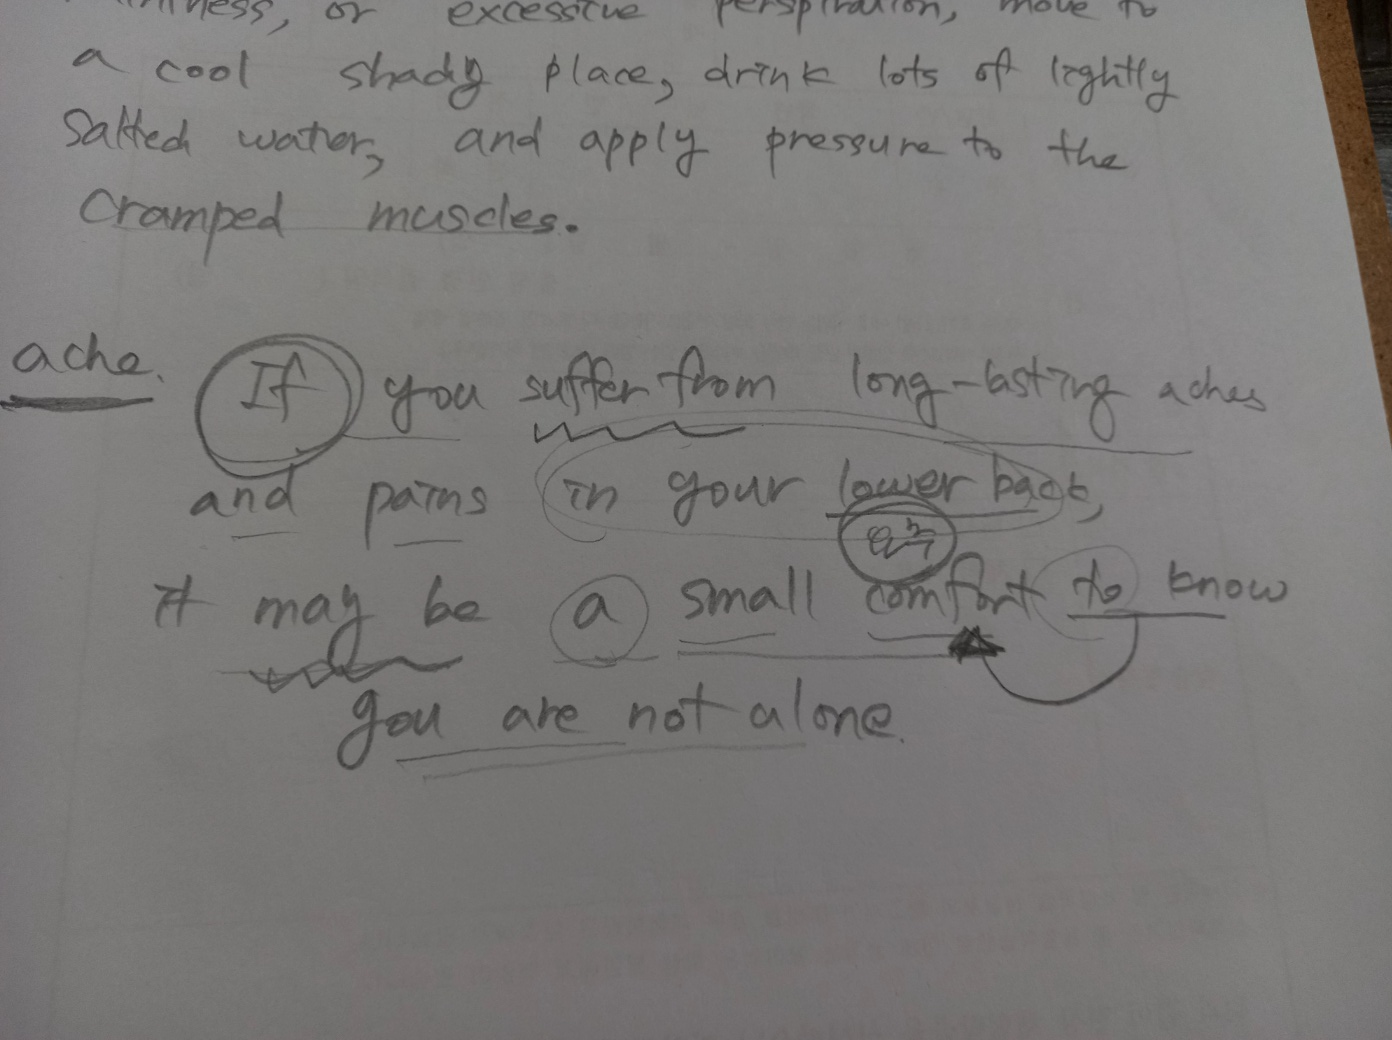 or excessive perspiration, move to
a cool shady place, drink lots of lightly
salted water, and apply pressure to the
cramped muscles.
ache. If you suffer from long-lasting aches
and pains in your lower back,
위로
it may be a small comfort to know
you are not alone.